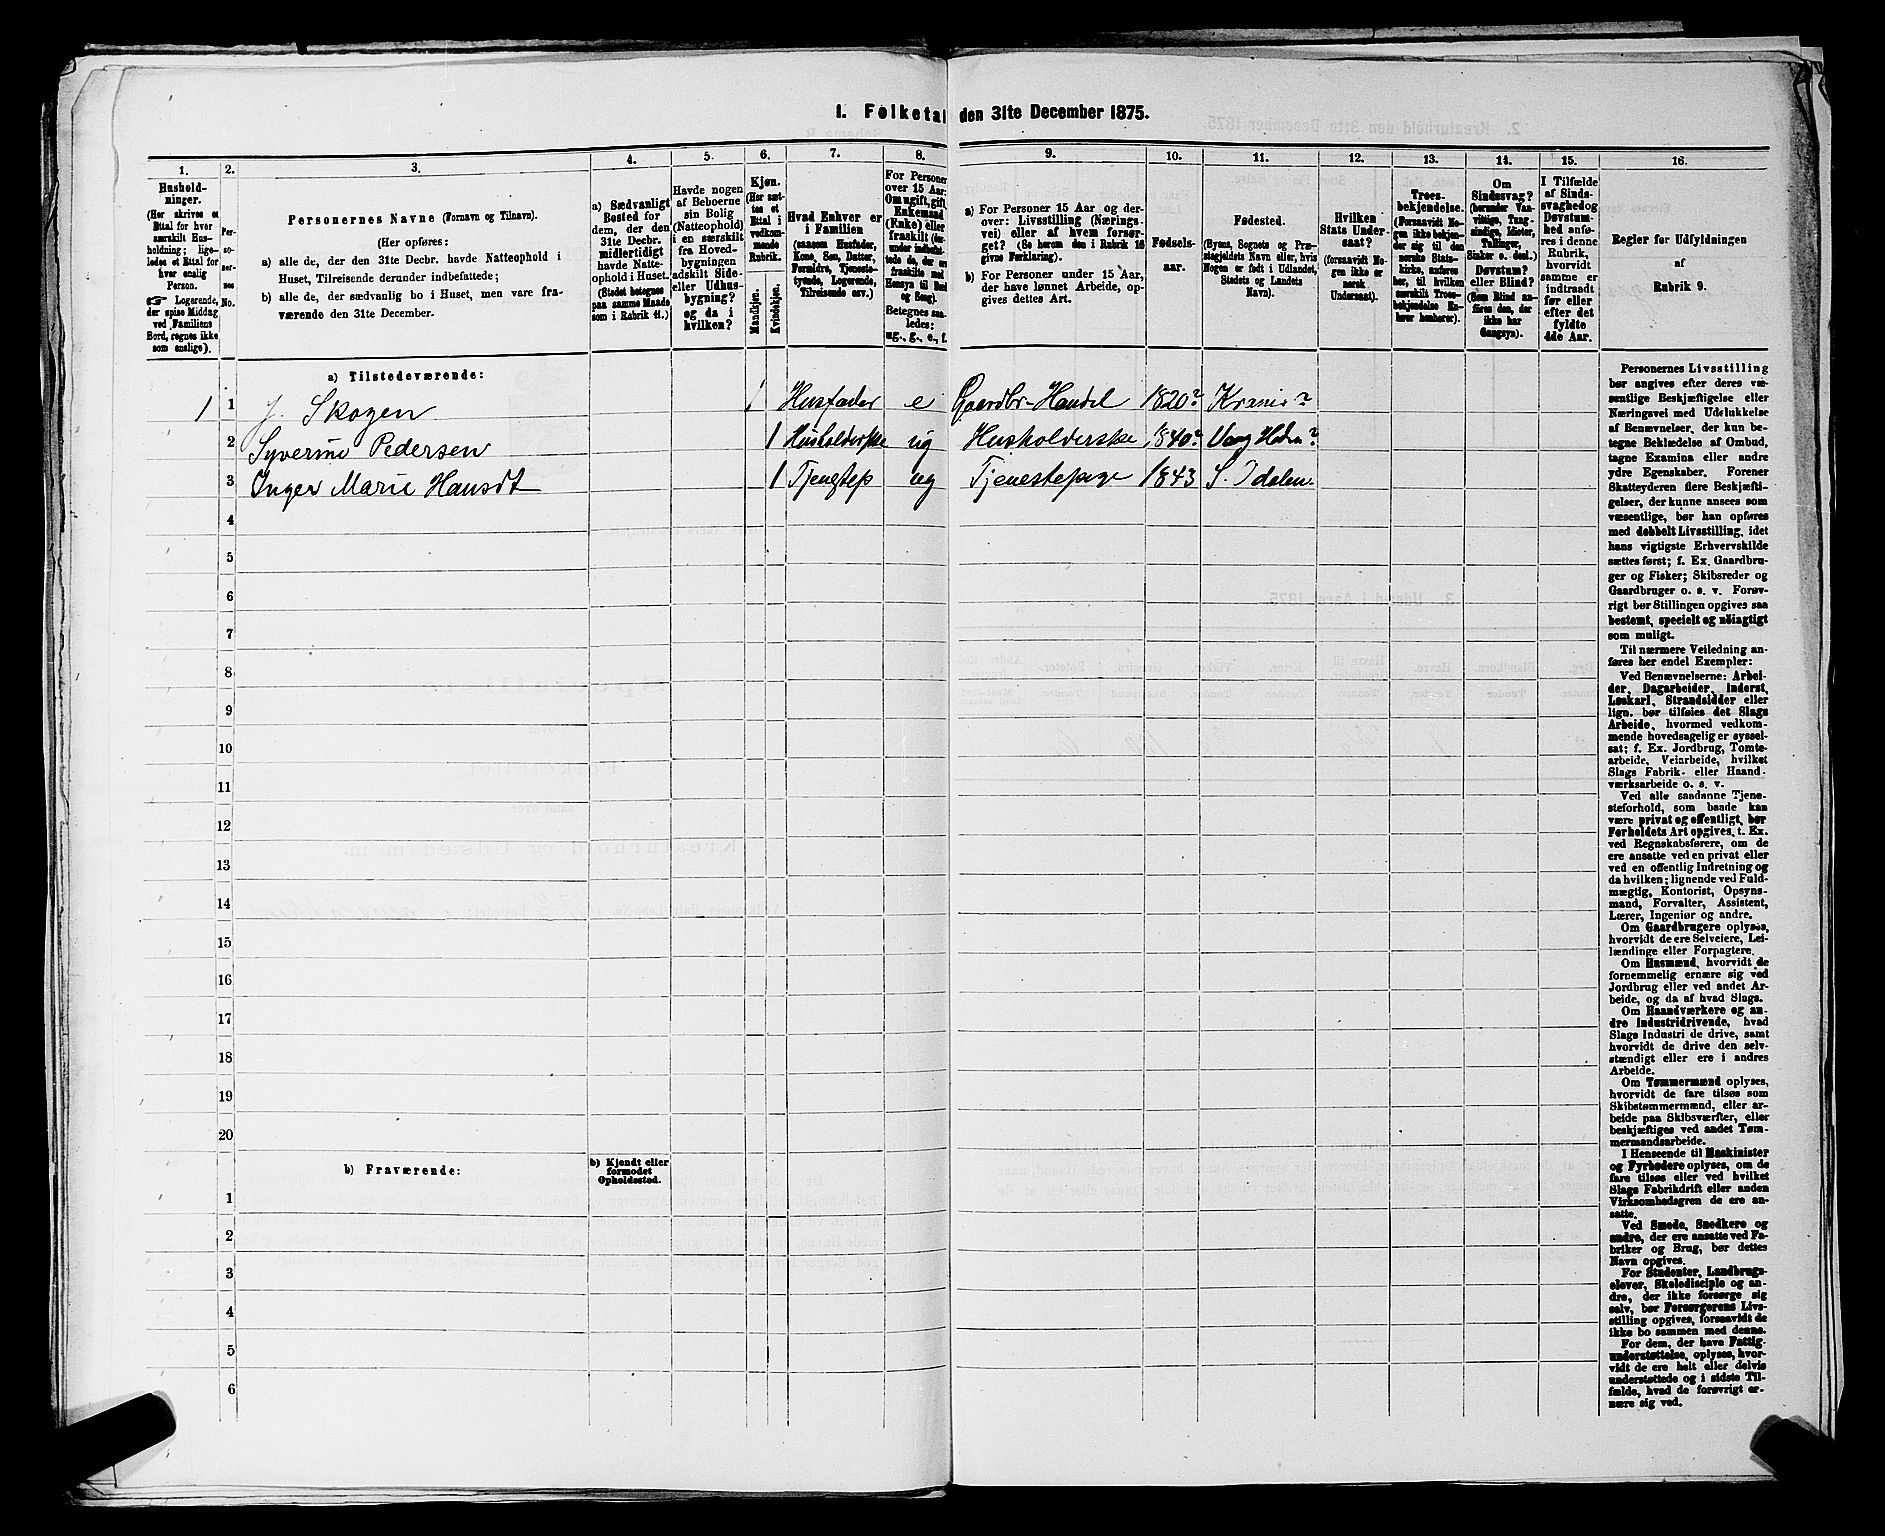 1. Folketal den 31te December 1875.
1. 2. 3. 4. 5. 6. 7. 8. 9. 10. 11. 12. 13. 14. 15. 16.
Hushold-
ninger.
(Her skrives et
Ettal for hver
særskilt Hus-
holdning; lige-
ledes et Ettal for
hver enslig
Person.
Logerende,
der spise Middag
ved Familiens
Bord, regnes ikke
som enslige).
Per-
so-
ner-
nes
No.
Personernes Navne (Fornavn og Tilnavn).
(Her opføres:
a) alle de, der den 31te Decbr. havde Natteophold i
Huset, Tilreisende derunder indbefattede;
b) alle de, der sædvanlig bo i Huset, men vare fra-
værende den 31te December.
a) Sædvanligt
Bosted for
dem, der den
31te Decbr.
midlertidigt
havde Natte-
ophold i Huset.
(Stedet betegnes
paa samme Maade
som i Rubrik 11.)
Havde nogen
af Beboerne
sin Bolig
(Natteophold)
i en særskilt
fra Hoved-
bygningen
adskilt Side-
eller Udhus-
bygning?
og da i
hvilken?
Kjøn.
(Her sæt-
tes et
Ettal i
vedkom-
mende
Rubrik.
Mandkjøn.
Kvindekjøn.
Hvad Enhver er
i Familien
(saasom Husfader,
Kone, Søn, Datter,
Forældre, Tjeneste-
tyende, Logerende,
Tilreisende osv.)
For Personer
over 15 Aar:
Om ugift, gift,
Enkemand
(Enke) eller
fraskilt
Betegnes saa-
ledes:
ug., g., e., f.
a) For Personer 15 Aar og der-
over: Livsstilling (Nærings-
vei) eller af hvem forsør-
get? (Se herom den i Rubrik 16
givne Forklaring).
b) For Personer under 15 Aar,
der have lønnet Arbeide, op-
gives dettes Art.
Fødsels-
aar.
Fødested.
(Byens, Sognets og Præ-
stegjeldets Navn eller, hvis
Nogen er født i Udlandet,
Stedets og Landets
Navn).
Hvilken
Stats Under-
saat?
(forsaavidt No-
gen ikke er
norsk
Undersaat).
Troes-
bekjendelse.
(Forsaavidt No-
gen ikke bekjen-
der sig til den
norske Stats-
kirke, anføres
her, til hvilken
særskilt Troes-
bekjendelse En-
hver henhører).
Om
Sindssvag?
(herunder Van-
vittige, Tung-
sindige, Idioter,
Tullinger,
Sinker o. desl.)
Døvstum?
eller Blind?
(Som Blind an-
føres den, der
ikke har
Gangsyn).
I Tilfælde
af Sinds-
svaghed og
Døvstum-
hed anfø-
res i denne
Rubrik,
hvorvidt
samme er
indtraadt
før eller
efter det
fyldte
4de Aar.
Regler for Udfyldningen
af
Rubrik 9.
a) Tilstedeværende:
1 1 J. Skogen 1 Husfader e Gaardbr- Handel 1820? Krania?
2 Syverine Pedersen 1 Husholderske ug Husholderske 1840? Vang Hedm?
3 Inger Marie Hansdt 1 Tjenestep ug Tjenestepige 1843 S. Odalen.
4
5
6
7
8
9
10
11
12
13
14
15
16
17
18
19
20
b) Fraværende:
b) Kjendt eller
formodet
Opholdssted.
1
2
3
4
5
6
Personernes Livsstilling
bør angives efter deres væ-
sentlige Beskjæftigelse eller
Næringsvei med Udelukkelse
af Benævnelser, der kun be-
tegne Beklædelse af Ombud,
tagne Examina eller andre
ydre Egenskaber. Forener
Skatteyderen flere Beskjæfti-
gelser, der kunne ansees som
væsentlige, bør han opføres
med dobbelt Livsstilling, idet
hans vigtigste Erhvervskilde
sættes først; f. Ex. Gaardbru-
ger og Fisker; Skibsreder og
Gaardbruger o. s. v. Forøv-
rigt bør Stillingen opgives saa
bestemt, specielt og nøiagtigt
som muligt.
Til nærmere Veiledning an-
føres her endel Exempler:
Ved Benævnelserne: Arbei-
der, Dagarbeider, Inderst,
Løskarl, Strandsidder eller
lign. bør tilføies det Slags
Arbeide, hvormed vedkom-
mende hovedsagelig er syssel-
sat; f. Ex. Jordbrug, Tomte-
arbeide, Veiarbeide, hvilket
Slags Fabrik- eller Haand-
værksarbeide o. s. v.
Ved alle saadanne Tjene-
steforhold, som baade kan
være privat og offentligt, bør
Forholdets Art opgives, t. Ex.
ved Regnskabsførere, om de
ere ansatte ved en privat eller
ved en offentlig Indretning og
da hvilken; lignende ved Fuld-
mægtig, Kontorist, Opsyns-
mand, Forvalter, Assistent,
Lærer, Ingeniør og andre.
Om Gaardbrugere oplyses,
hvorvidt de ere Selveiere, Lei-
lændinge eller Forpagtere.
Om Husmænd, hvorvidt de
fornemmelig ernære sig ved
Jordbrug eller ved andet Ar-
beide, og da af hvad Slags.
Om Haandværkere og an-
dre Industridrivende, hvad
Slags Industri de drive, samt
hvorvidt de drive den selv-
stændigt eller ere i andres
Arbeide.
Om Tømmermænd oplyses,
hvorvidt de fare tilsøs som
Skibstømmermænd, eller ar-
beide paa Skibsværfter, eller
beskjæftiges ved andet Tøm-
mermandsarbeide.
I Henseende til Maskinister
og Fyrbødere oplyses, om de
fare tilsøs eller ved hvilket
Slags Fabrikdrift eller anden
Virksomhedsgren de ere an-
satte.
Ved Smede, Snedkere og
andre, der ere ansatte ved Fa-
briker og Brug, bør dettes
Navn opgives.
For Studenter, Landbrugs-
elever, Skoledisciple og an-
dre, der ikke forsørge sig
selv, bør Forsørgerens Livs-
stilling opgives, forsaavidt de
ikke bo sammen med denne.
For dem, der have Fattig-
understøttelse, oplyses, hvor-
vidt de ere helt eller delvis
understøttede og i sidste Til-
fælde, hvad de forøvrigt er-
nære sig ved.